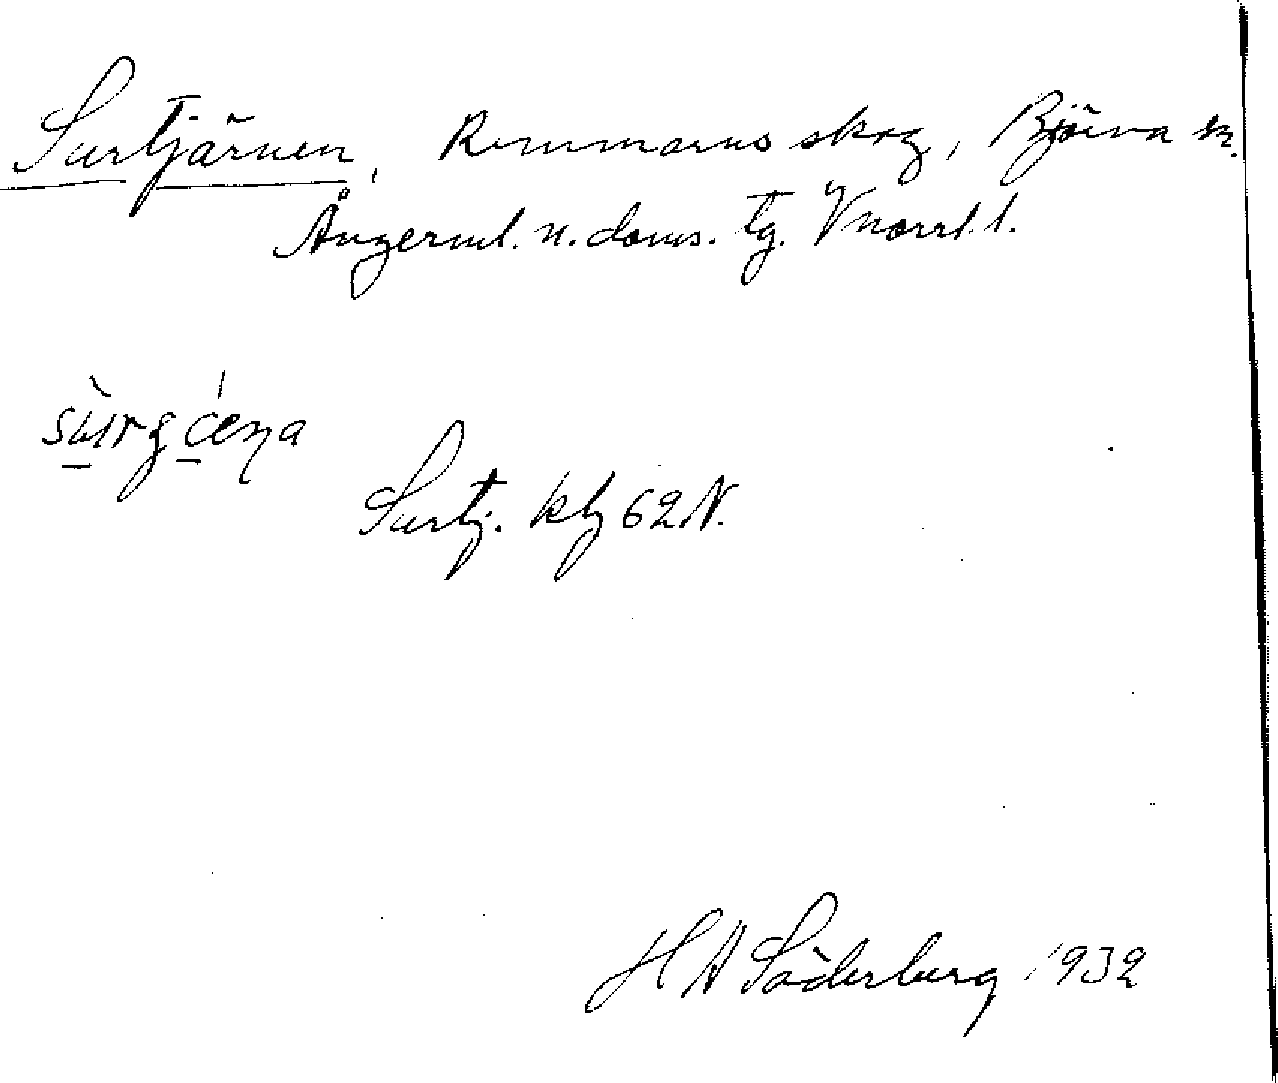 Surtjärnen, Remmarns skog, Björna sn.
Ångerml. n. doms. tg. Vnorrl. l.
Surtj. kbl 62 N.
H A Söderberg 1932